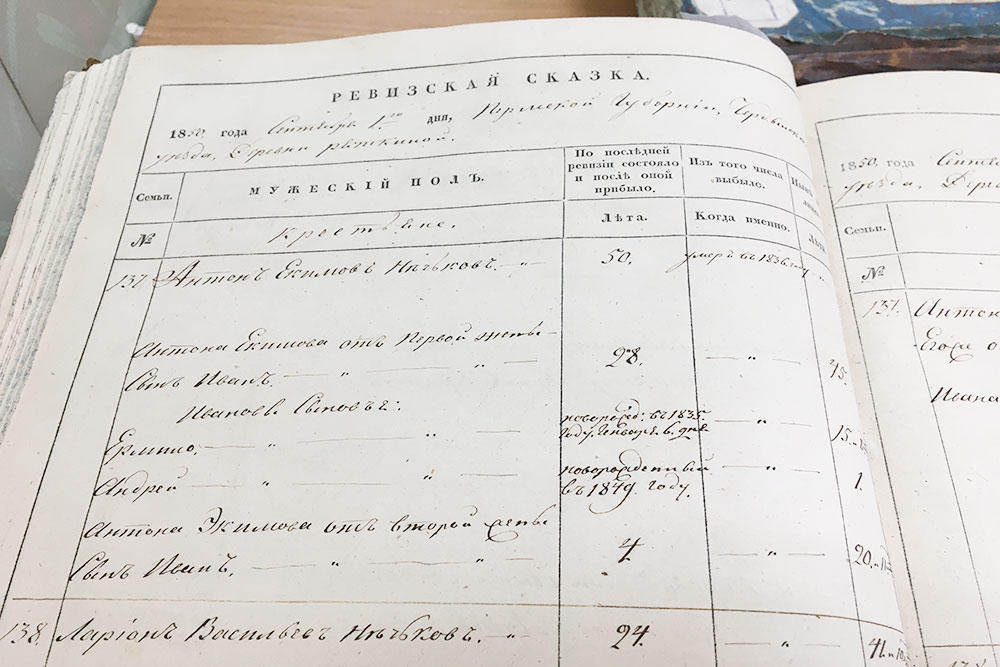 РЕВИЗСКАЯ СКАЗКА.
1850 года Сентября 1го дня, Пермской Губерніи,
уѣзда, Деревни
Семьи.
МУЖЕСКІЙ ПОЛЪ.
По послѣдней
ревизіи состояло
и послѣ оной
прибыло.
Изъ того числа
выбыло.
№
Крестьяне.
Лѣта.
Когда именно.
137. Антонъ Екимовъ Нѣчьковъ. 50. умеръ въ 1836
Антона Екимова отъ Первой жены
Сынъ Иванъ. 28. 45.
Ивановы Сыновья:
Ермило, новорожд: въ 1835.
Году, Генваря 6. дня 15.
Андрей новорожденный
въ 1849. году. 1.
Антона Экимова отъ второй жены
Сынъ Иванъ. 4 20.
138. Ларіонъ Васильевъ Нѣчьковъ. 24. 41.
1850. года
уѣзда,
Семьи.
№
137.
Егора
Ивана